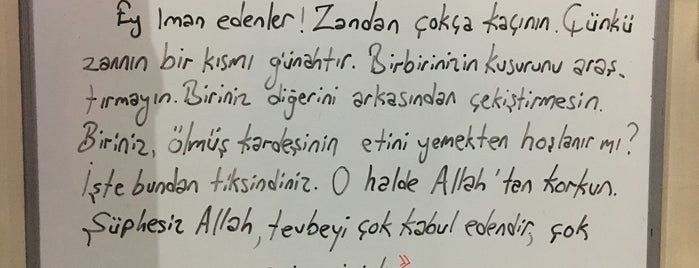 Ey Iman edenler! Zandan çokça kaçının. Çünkü
zannın bir kısmı günahtır. Birbirinizin kusurunu araş-
tırmayın. Biriniz diğerini arkasından çekiştirmesin.
Biriniz, ölmüş kardeşinin etini yemekten hoşlanır mı?
İşte bundan tiksindiniz. O halde Allah'tan korkun.
Şüphesiz Allah, tevbeyi çok kabul edendir, çok